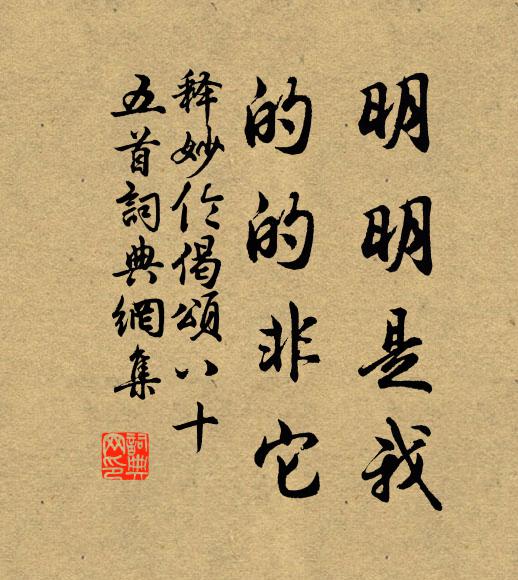 明明是我
的的非它
释妙伦偈颂八十
五首詞典網集
詞典
网印